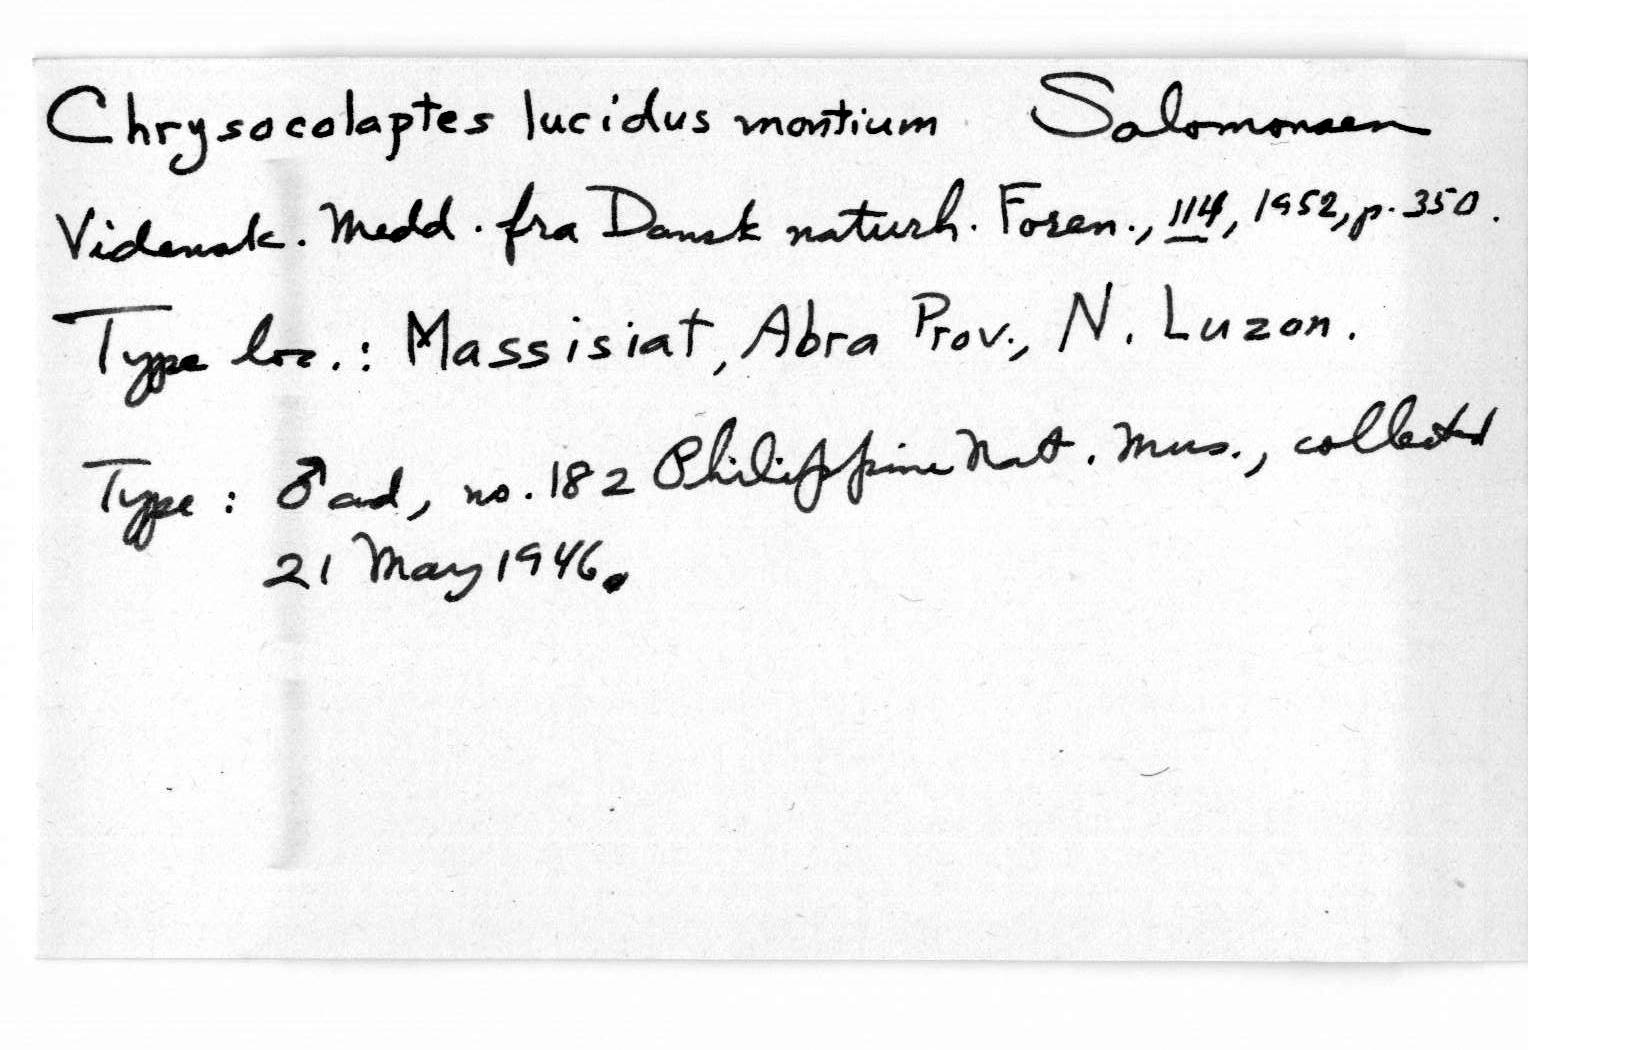 Chrysocolaptes lucidus montium Salomonsen
Vidensk. Medd. fra Dansk naturh. Foren., 114, 1952, p. 350.
Type loc.: Massisiat, Abra Prov., N. Luzon.
Type: ♂ ad, no. 182 Philippine Nat. Mus., collected
21 May 1946.